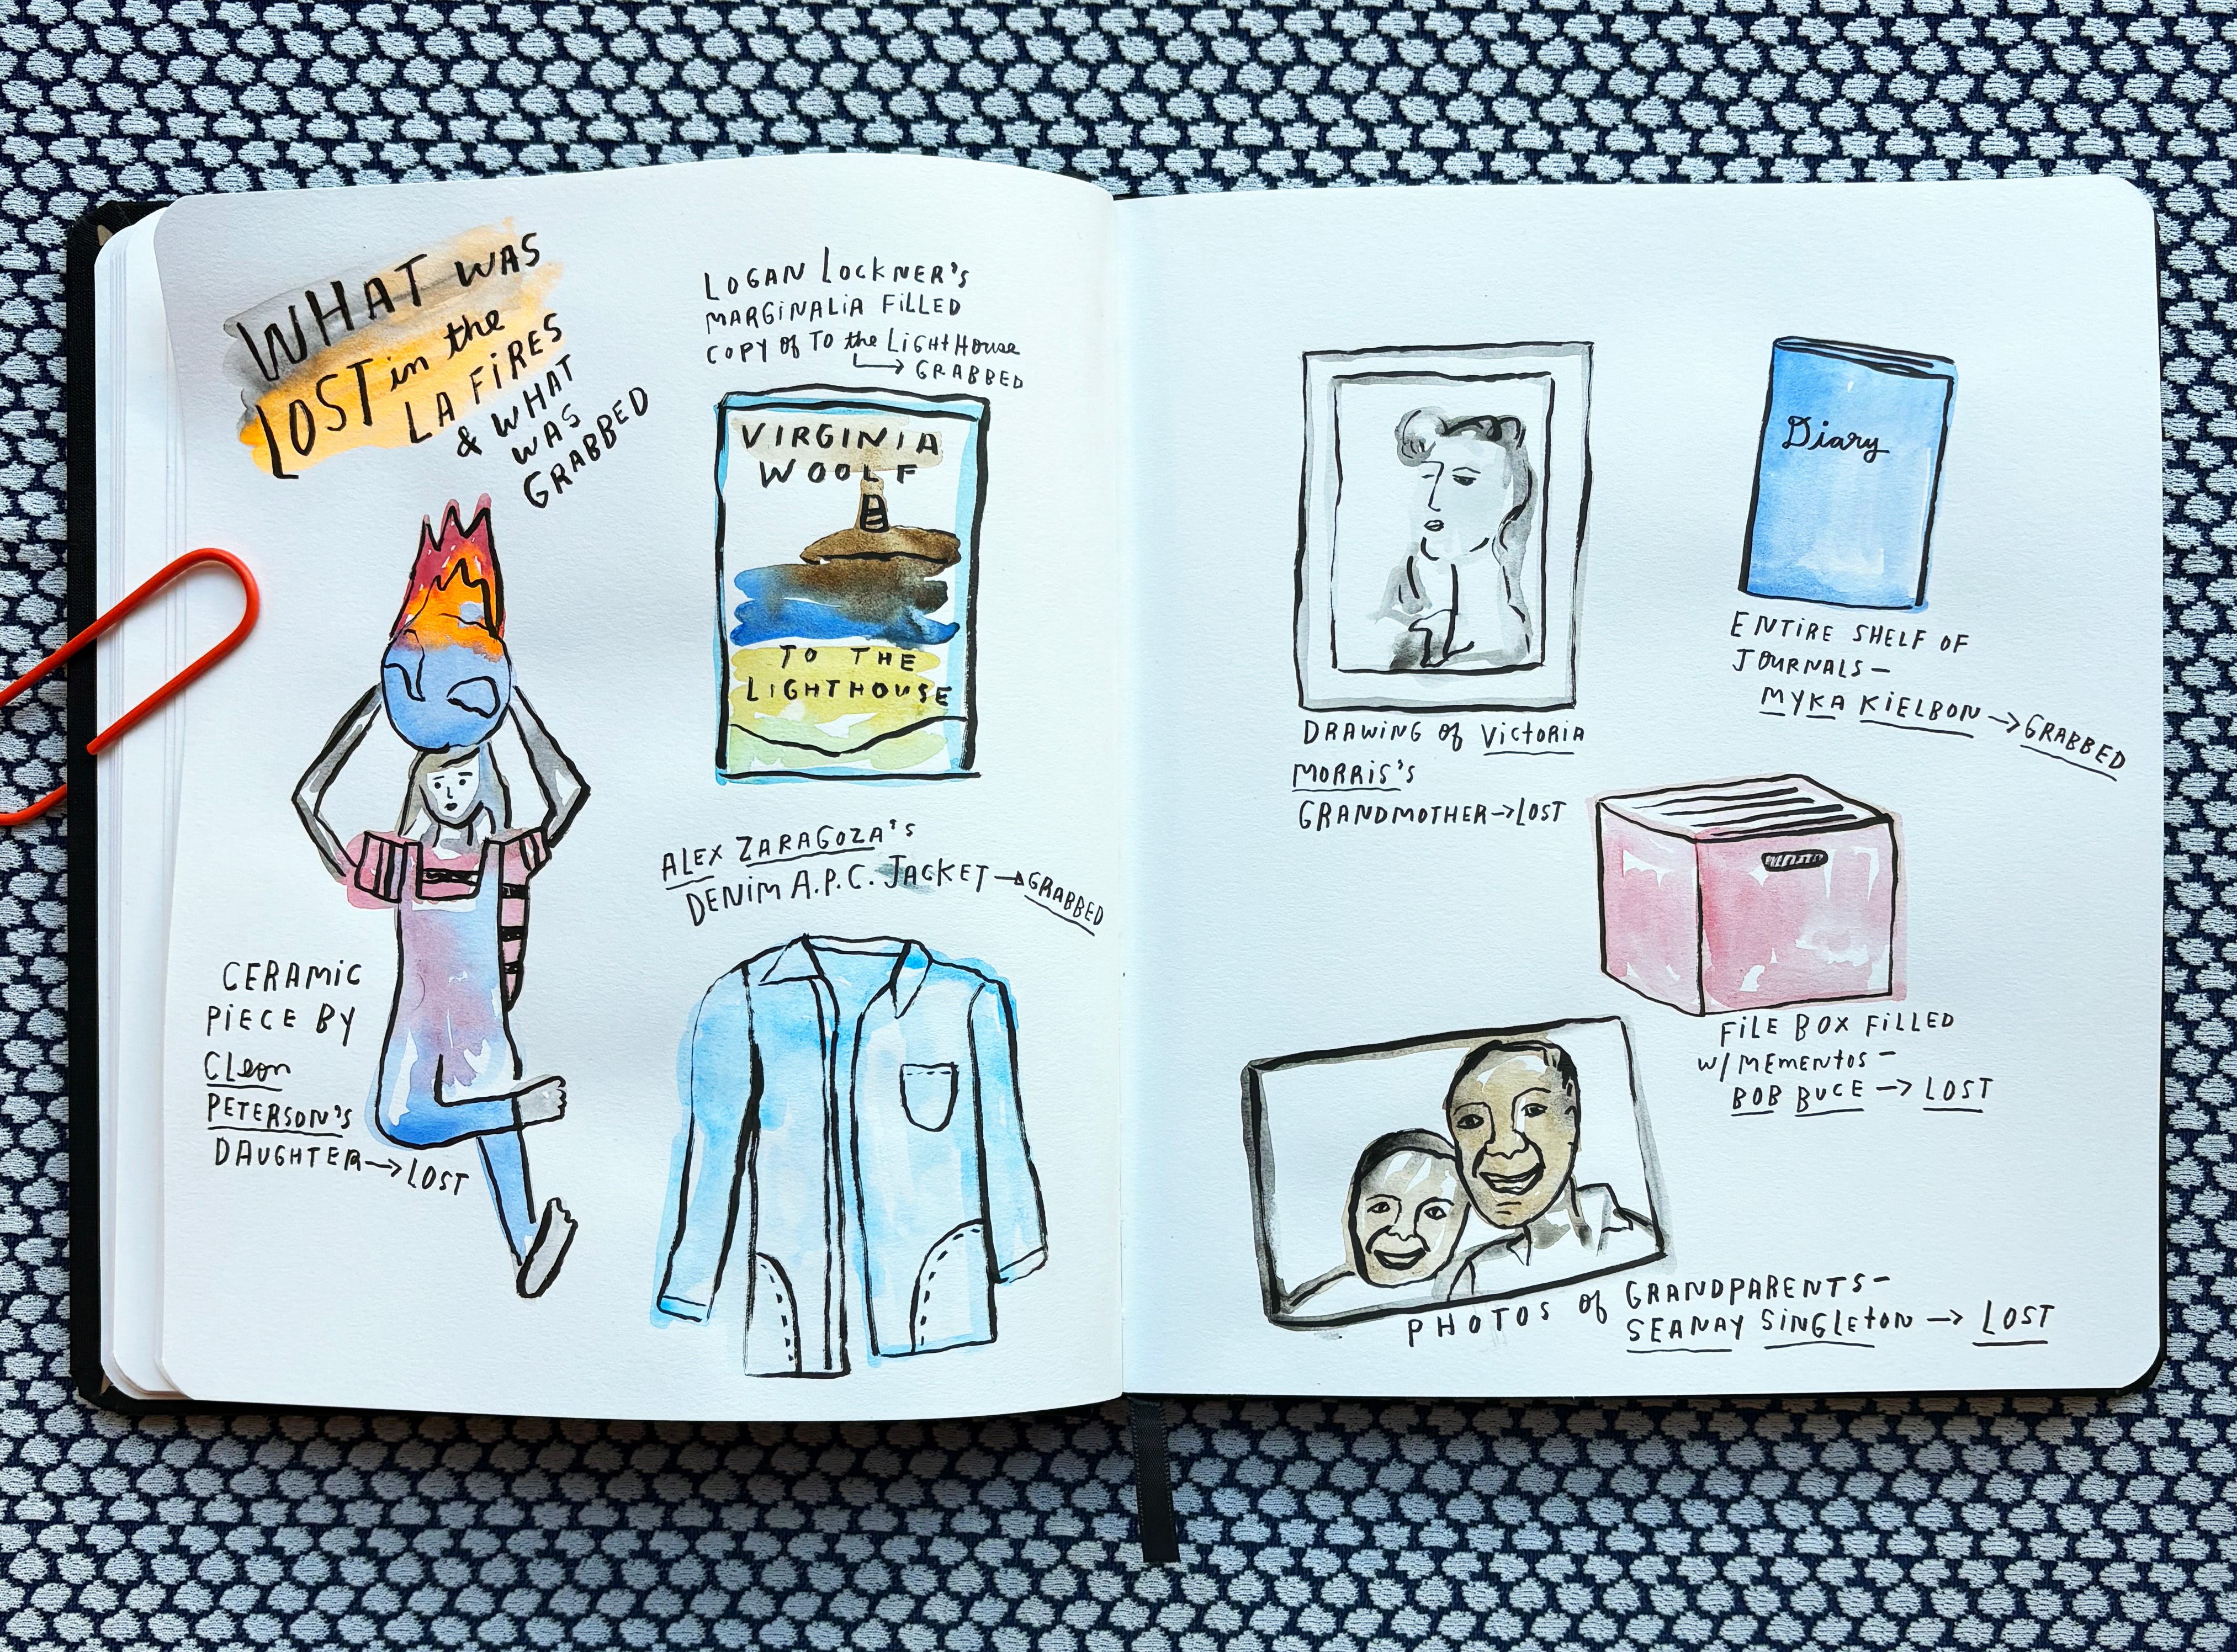 WHAT WAS
LOST in the
LA FIRES
& WHAT
WAS
GRABBED
CERAMIC
PIECE BY
CLEON
PETERSON'S
DAUGHTER→LOST
LOGAN LOCKNER'S
MARGINALIA FILLED
COPY of TO the LIGHTHOUSE
→ GRABBED
VIRGINIA
WOOLF
TO THE
LIGHTHOUSE
ALEX ZARAGOZA'S
DENIM A.P.C. JACKET → GRABBED
DRAWING of VICTORIA
MORRIS'S
GRANDMOTHER→LOST
Diary
ENTIRE SHELF OF
JOURNALS—
MYKA KIELBON → GRABBED
FILE BOX FILLED
W/ MEMENTOS—
BOB BUCE → LOST
PHOTOS of GRANDPARENTS—
SEANAY SINGLETON → LOST